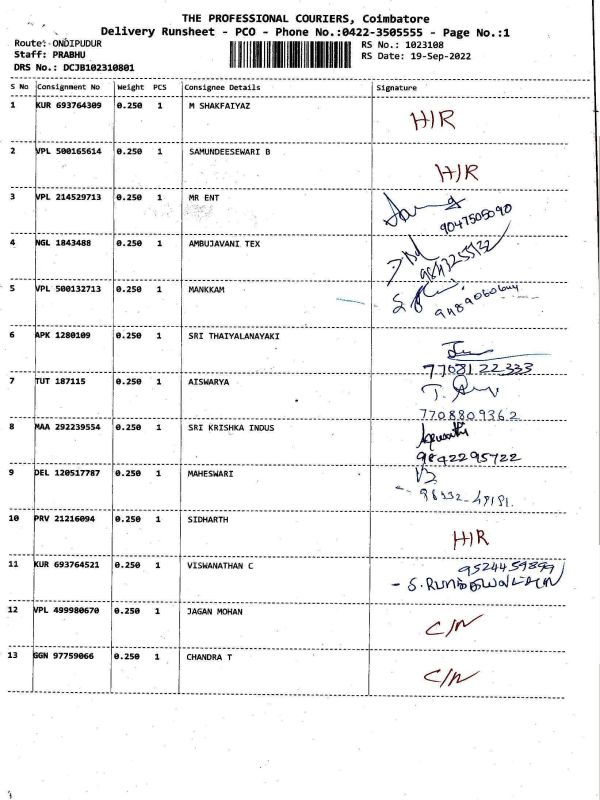 THE PROFESSIONAL COURIERS, Coimbatore
Delivery Runsheet - PCO - Phone No.:0422-3505555 - Page No.:1
Route: ONDIPUDUR
RS No.: 1023108
Staff: PRABHU
RS Date: 19-Sep-2022
DRS No.: DCJB102310801
S No Consignment No Weight PCS Consignee Details Signature
1 KUR 693764309 0.250 1 M SHAKFAIYAZ H/R
2 VPL 500165614 0.250 1 SAMUNDEESEWARI B H/R
3 VPL 214529713 0.250 1 MR ENT
9047505090
4 NGL 1843488 0.250 1 AMBUJAVANI TEX
5 VPL 500132713 0.250 1 MANKKAM
6 APK 1280109 0.250 1 SRI THAIYALANAYAKI
7708122333
7 TUT 187115 0.250 1 AISWARYA
7708809362
8 MAA 292239554 0.250 1 SRI KRISHKA INDUS
9842295722
9 DEL 120517787 0.250 1 MAHESWARI
10 PRV 21216094 0.250 1 SIDHARTH H/R
11 KUR 693764521 0.250 1 VISWANATHAN C
12 VPL 499980670 0.250 1 JAGAN MOHAN C/N
13 GGN 97759066 0.250 1 CHANDRA T C/N